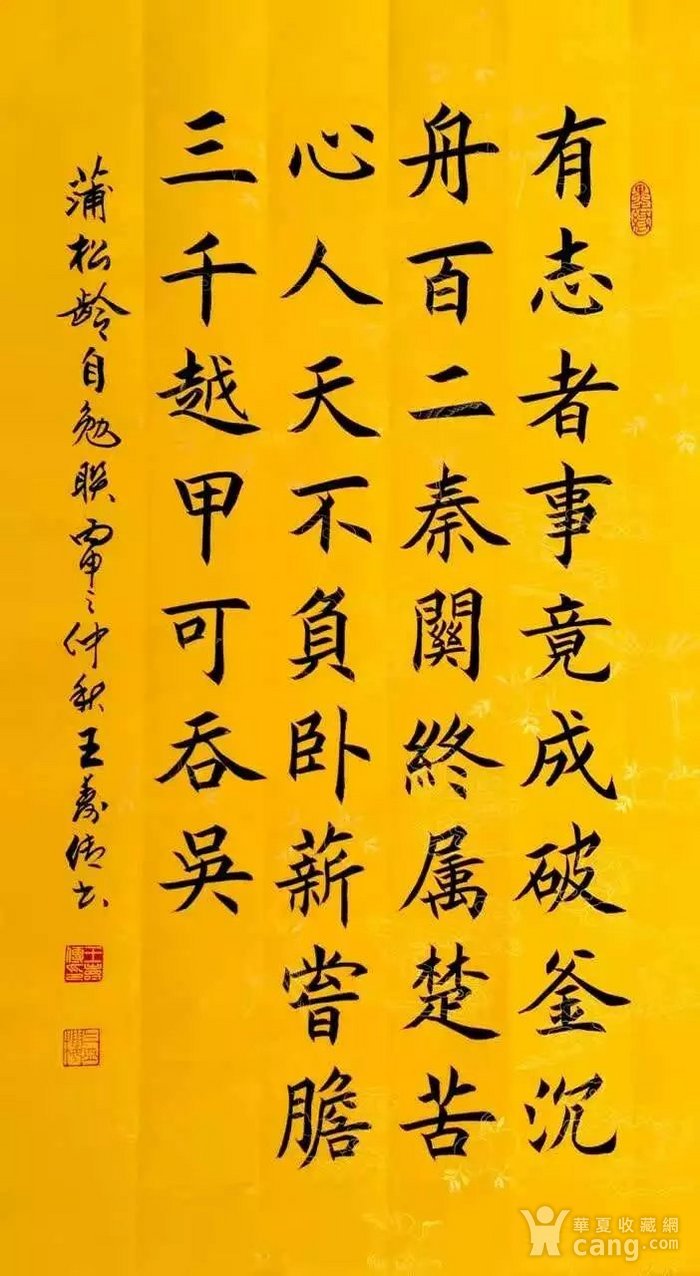 有志者事竟成破釜沉
舟百二秦關終属楚苦
心人天不負卧薪嘗膽
三千越甲可吞吳
蒲松齡自勉联丙申之仲秋王寿传书
華夏收藏網
cang.com